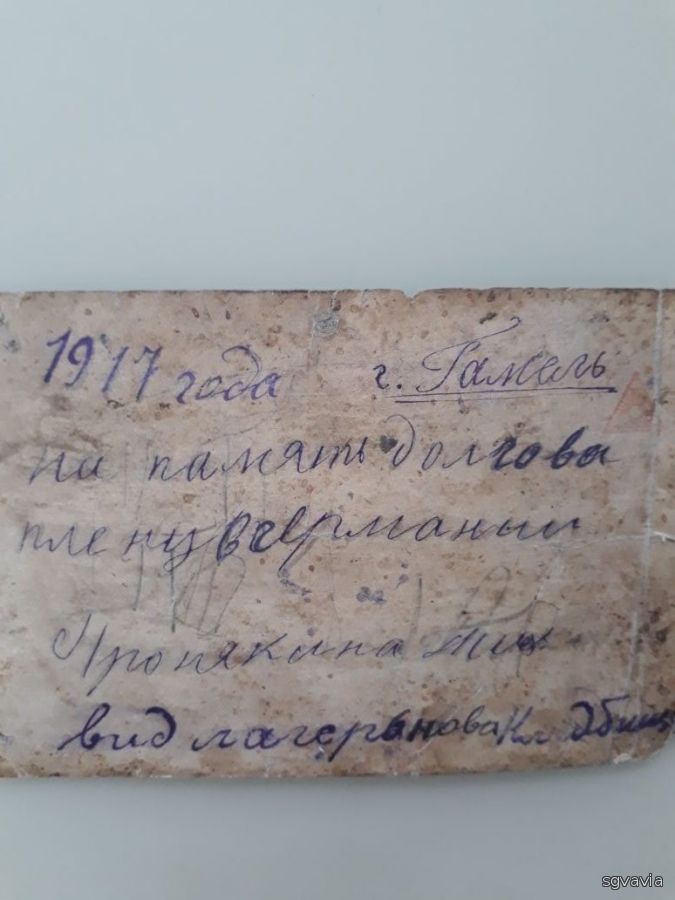 1917 года г. Гамель
на память долгова
плену вгермании
Пронякина Тих
вид лагерьнова Кладбищ
sgvavia